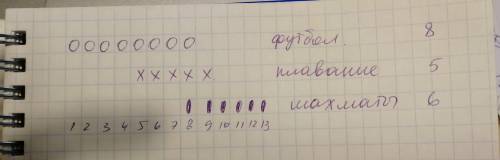 0 0 0 0 0 0 0 0 футбол. 8
x x x x x плавание 5
шахматы 6
1 2 3 4 5 6 7 8 9 10 11 12 13